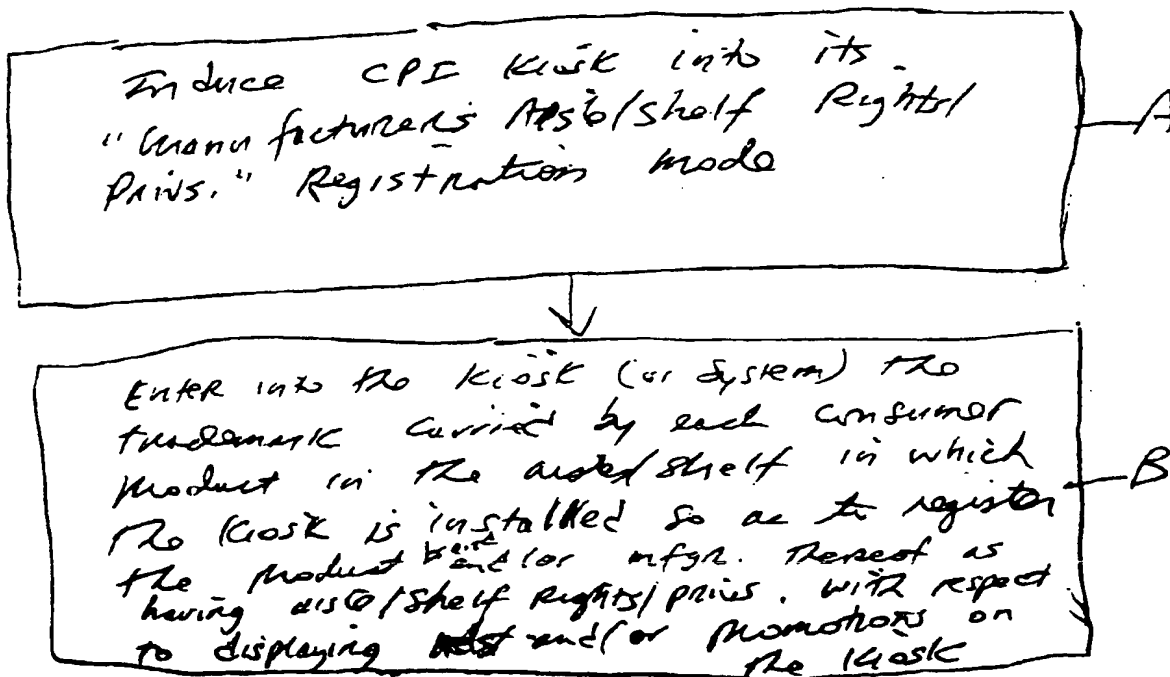 Induce CPI Kiosk into its
"Manufacturer's Aisle/Shelf Rights/
Privs." Registration mode
A
Enter into the Kiosk (or System) the
trademark carried by each consumer
product in the aisle/shelf in which
the Kiosk is installed so as to register
B
the product and/or mfgr. thereof as
having aisle/shelf Rights/privs. with respect
to displaying and/or promotions on
the Kiosk